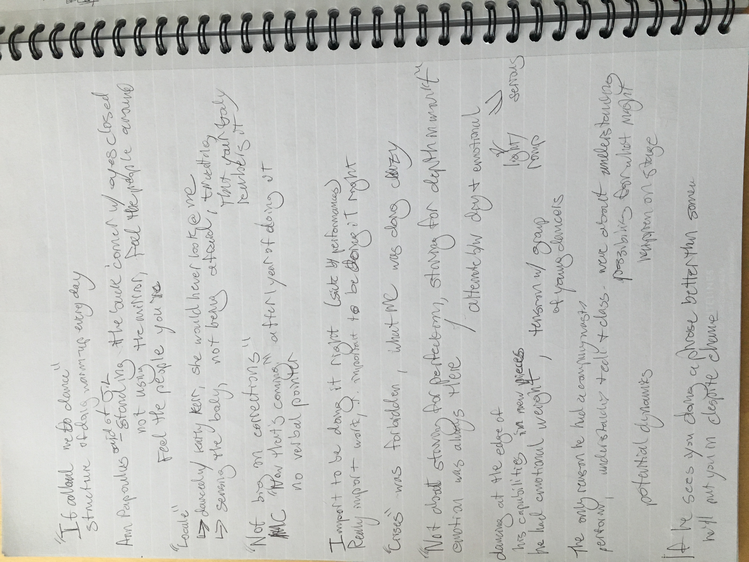 "It called me to dance"
structure of doing warmup every day
out of JL
Ann Papoulis standing the back corner w/ eyes closed
not using the mirror, feel the people around
Feel the people you're
"Locale"
↳ danced w/ Larry Kerr, she would never look @ me
↳ sensing the body, not being afraid, trusting
that your body
it
"Not big on corrections"
MC "Now that's coming" after 1 year of doing it
no verbal pointer
Import to be doing it right (sake of performances)
Really import work, & important to be doing it right
was forbidden, what MC was doing crazy
"Not about striving for perfection, striving for depth in work"
emotion was always there / alternate btw dry & emotional
light/ serious
romp
dancing at the edge of
his capabilities in new pieces
he had emotional weight, tension w/ group
of young dancers
The only reason he had a company was to
perform, understands tech & class were about understanding
possibilities for what might
happen on stage
potential dynamics
If he sees you doing a phrase better than someone
he'll put you in despite chance